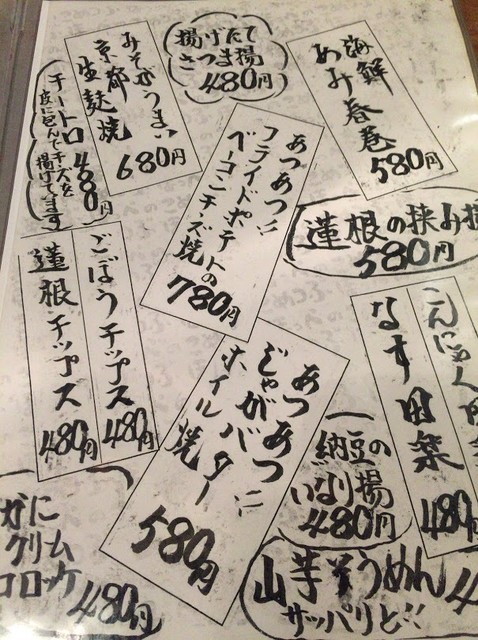 揚げたて
さつま揚
480円
海鮮
あみ春巻
580円
みそがうまい
京都
生麩焼
680円
チートロ 480円
皮に包んでチーズを
揚げてます
あつあつ!!
フライドポテトの
ベーコンチーズ焼
780円
蓮根の挟み揚
580円
ごぼうチップス
480円
蓮根チップス
480円
あつあつ!!
じゃがバター
ホイル焼
580円
こんにゃく田
なす田楽
480円
納豆の
いなり揚
480円
がに
クリーム
コロッケ 480円
山芋そうめん 4
サッパリと!!